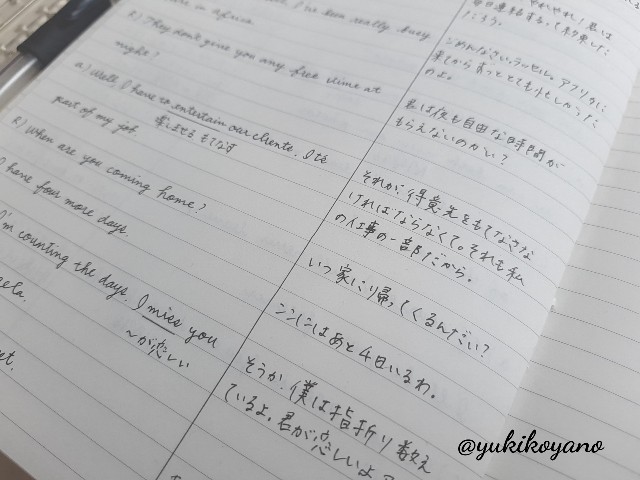 I've been really busy
here in Africa.
R) They don't give you any free time at
night?
a) Well, I have to entertain our clients. It's
楽しませる もてなす
part of my job.
R) When are you coming home?
I have four more days.
I'm counting the days. I miss you
〜が恋しい
毎日連絡するって約束した
だろう。
ごめんなさい。ラッセル。アフリカに
来てからずっととても忙しかった
のよ。
君は夜も自由な時間が
もらえないのかい?
それが得意先をもてなさな
ければならなくて。それも私
の仕事の一部だから。
いつ家に帰ってくるんだい?
ここにはあと4日いるわ。
そうか。僕は指折り数え
ているよ。君が恋しいよ
@yukikoyano